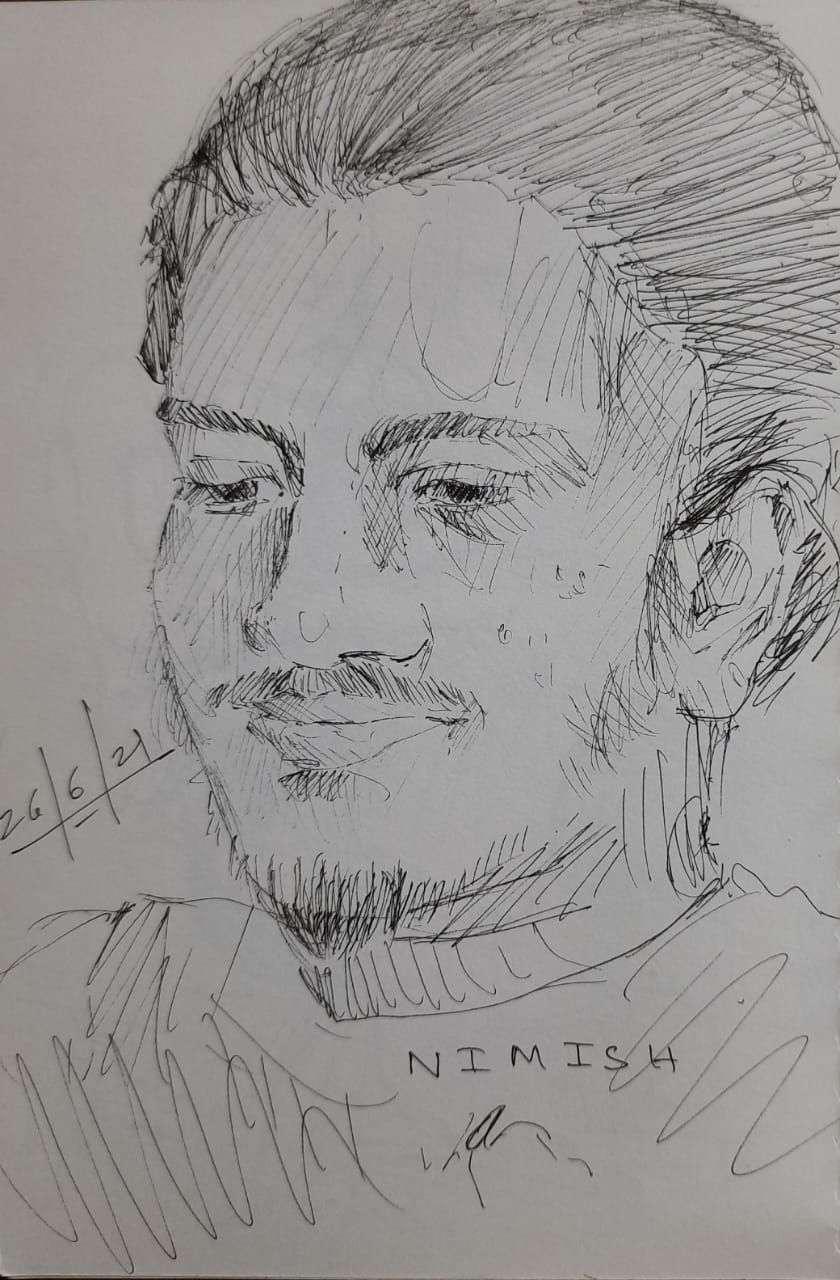 26/6/21
NIMISH